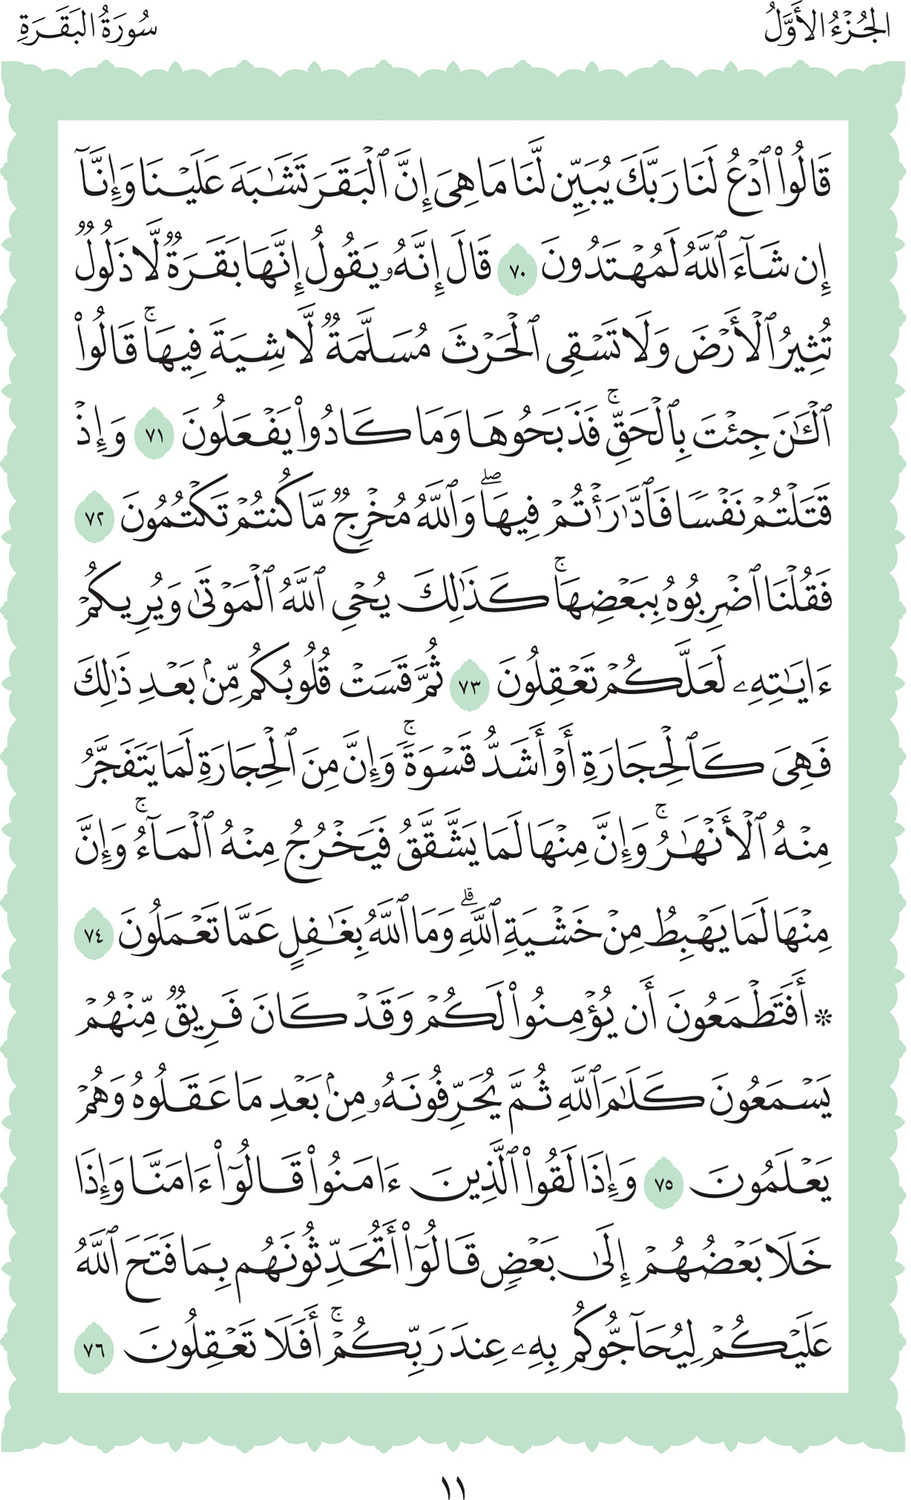 الجُزْءُ الأَوَّلُ
سُورَةُ البَقَرَةِ
قَالُواْ ٱدۡعُ لَنَا رَبَّكَ يُبَيِّن لَّنَا مَا هِيَ إِنَّ ٱلۡبَقَرَ تَشَٰبَهَ عَلَيۡنَا وَإِنَّآ
إِن شَآءَ ٱللَّهُ لَمُهۡتَدُونَ ٧٠ قَالَ إِنَّهُۥ يَقُولُ إِنَّهَا بَقَرَةٞ لَّا ذَلُولٞ
تُثِيرُ ٱلۡأَرۡضَ وَلَا تَسۡقِي ٱلۡحَرۡثَ مُسَلَّمَةٞ لَّا شِيَةَ فِيهَاۚ قَالُواْ
ٱلۡـَٰٔنَ جِئۡتَ بِٱلۡحَقِّۚ فَذَبَحُوهَا وَمَا كَادُواْ يَفۡعَلُونَ ٧١ وَإِذۡ
قَتَلۡتُمۡ نَفۡسٗا فَٱدَّٰرَٰٔتُمۡ فِيهَاۖ وَٱللَّهُ مُخۡرِجٞ مَّا كُنتُمۡ تَكۡتُمُونَ ٧٢
فَقُلۡنَا ٱضۡرِبُوهُ بِبَعۡضِهَاۚ كَذَٰلِكَ يُحۡيِ ٱللَّهُ ٱلۡمَوۡتَىٰ وَيُرِيكُمۡ
ءَايَٰتِهِۦ لَعَلَّكُمۡ تَعۡقِلُونَ ٧٣ ثُمَّ قَسَتۡ قُلُوبُكُم مِّنۢ بَعۡدِ ذَٰلِكَ
فَهِيَ كَٱلۡحِجَارَةِ أَوۡ أَشَدُّ قَسۡوَةٗۚ وَإِنَّ مِنَ ٱلۡحِجَارَةِ لَمَا يَتَفَجَّرُ
مِنۡهُ ٱلۡأَنۡهَٰرُۚ وَإِنَّ مِنۡهَا لَمَا يَشَّقَّقُ فَيَخۡرُجُ مِنۡهُ ٱلۡمَآءُۚ وَإِنَّ
مِنۡهَا لَمَا يَهۡبِطُ مِنۡ خَشۡيَةِ ٱللَّهِۗ وَمَا ٱللَّهُ بِغَٰفِلٍ عَمَّا تَعۡمَلُونَ ٧٤
* أَفَتَطۡمَعُونَ أَن يُؤۡمِنُواْ لَكُمۡ وَقَدۡ كَانَ فَرِيقٞ مِّنۡهُمۡ
يَسۡمَعُونَ كَلَٰمَ ٱللَّهِ ثُمَّ يُحَرِّفُونَهُۥ مِنۢ بَعۡدِ مَا عَقَلُوهُ وَهُمۡ
يَعۡلَمُونَ ٧٥ وَإِذَا لَقُواْ ٱلَّذِينَ ءَامَنُواْ قَالُوٓاْ ءَامَنَّا وَإِذَا
خَلَا بَعۡضُهُمۡ إِلَىٰ بَعۡضٖ قَالُوٓاْ أَتُحَدِّثُونَهُم بِمَا فَتَحَ ٱللَّهُ
عَلَيۡكُمۡ لِيُحَآجُّوكُم بِهِۦ عِندَ رَبِّكُمۡۚ أَفَلَا تَعۡقِلُونَ ٧٦
١١